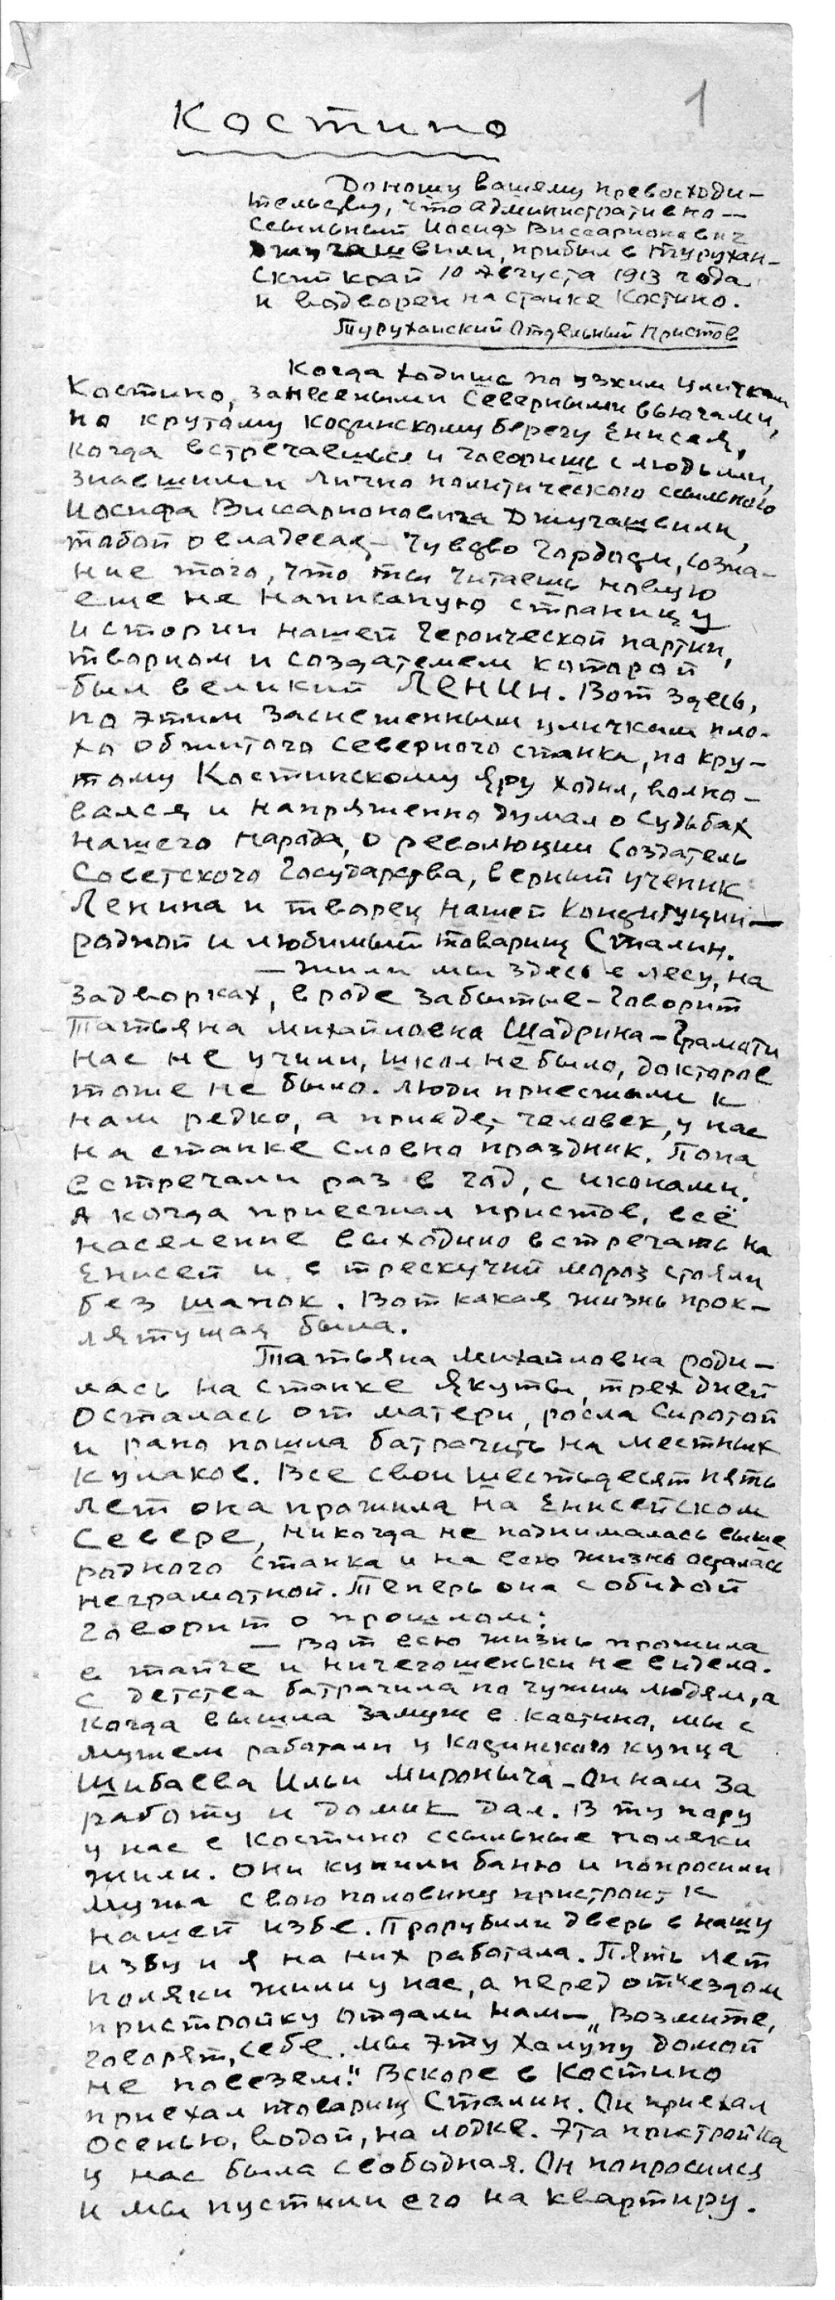 1
Костино
Доношу вашему превосходи-
тельству, что административно-
ссыльный Иосиф Виссарионович
Джугашвили, прибыл в Турухан-
ский край 10 августа 1913 года
и водворен на станке Костино.
Туруханский Отдельный Пристов
Когда ходишь по узким уличкам
Костино, занесеными северными вьюгами,
по крутому кодинскому берегу Енисея,
когда встречаешься и говоришь с людьми,
знавшими лично политического ссыльного
Иосифа Виссарионовича Джугашвили,
тобой овладевает чувство гордости, созна-
ние того, что ты читаешь новую
еще не написаную страницу
истории нашей героической партии,
творцом и создателем которой
был великий ЛЕНИН. Вот здесь,
по этим заснеженным уличкам пло-
хо обжитого северного станка, по кру-
тому Костинскому Яру ходил, волно-
вался и напряженно думал о судьбах
нашего народа, о революции Создатель
Советского Государства, верный ученик
Ленина и творец нашей Конституции—
родной и любимый товарищ Сталин.
— Жили мы здесь в лесу, на
задворках, вроде забытые – говорит
Татьяна Михайловна Шадрина – Грамоти
нас не учили, школ не было, докторов
тоже не было. Люди приезжали к
нам редко, а приедет человек, у нас
на станке словно праздник. Попа
встречали раз в год, с иконами.
А когда приезжал пристов, всё
население выходило встречать на
Енисей и в трескучий мороз стояли
без шапок. Вот какая жизнь прок-
лятущая была.
Татьяна Михайловна роди-
лась на станке Якуты, трех дней
осталась от матери, росла сиротой
и рано пошла батрачить на местных
кулаков. Все свои шестьдесят пять
лет она прожила на Енисейском
Севере, никогда не поднималась выше
родного станка и на всю жизнь осталась
неграмотной. Теперь она с обидой
говорит о прошлом:
— Вот всю жизнь прожила
в тайге и ничегошеньки не видела.
С детства батрачила по чужим людям, а
когда вышла замуж в Костино, мы с
мужем работали у кодинского купца
Шибаева Ильи Мироныча – Он нам за
работу и домик дал. В ту пору
у нас в Костино ссыльные поляки
жили. Они купили баню и попросили
мужа свою половину пристроить к
нашей избе. Прорубили дверь в нашу
избу и я на них работала. Пять лет
поляки жили у нас, а перед отъездом
пристройку отдали нам – „Возмите,
говорят, себе. Мы эту халупу домой
не повезем." Вскоре в Костино
приехал товарищ Сталин. Он приехал
осенью, водой, на лодке. Эта пристройка
у нас была свободная. Он попросился
и мы пустили его на квартиру.